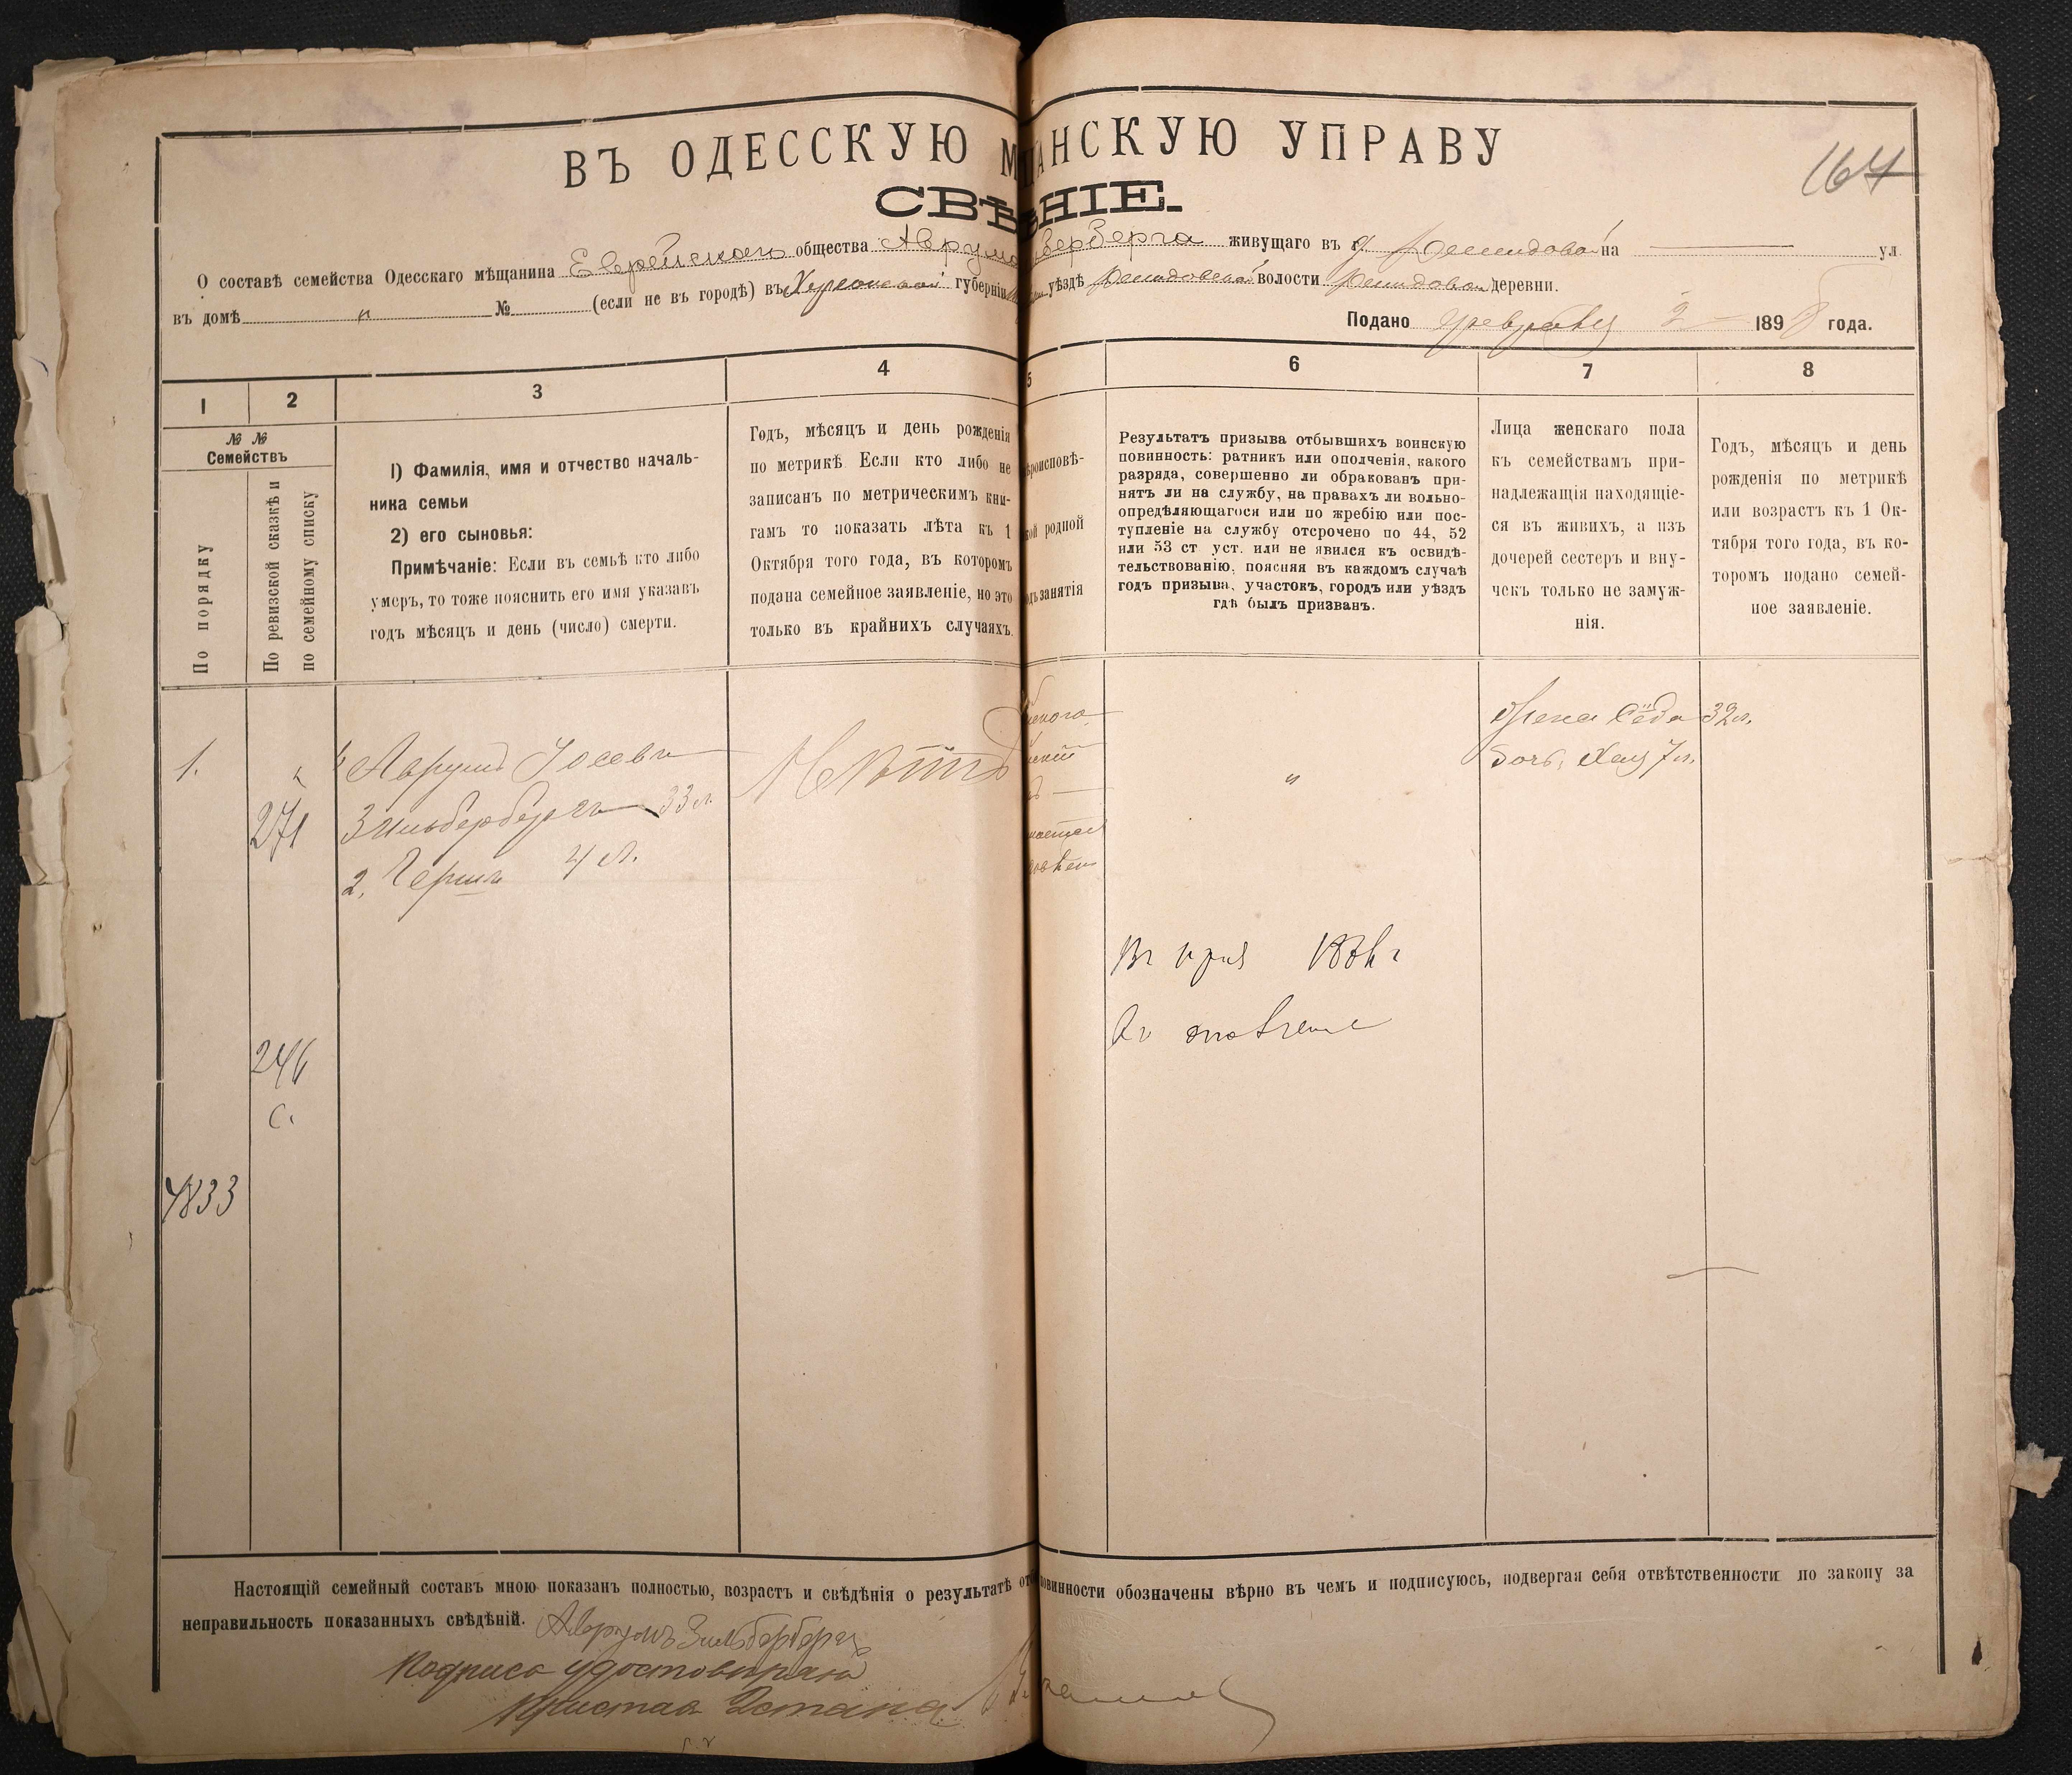 164
ВЪ ОДЕССКУЮ М АНСКУЮ УПРАВУ
СВѢ НІЕ.
О составѣ семейства Одесскаго мѣщанина Еврейскаго общества Аврума берберга живущаго въ д Демидовой на ул.
въ домѣ " № (если не въ городѣ) въ Херсонской губерніи уѣздѣ Демидовской волости Демидовой деревни.
Подано февраля 2 189 года.
1 2 3 4 5 6 7 8
№ №
Семействъ
По порядку
По ревизской сказкѣ и
по семейному списку
1) Фамилія, имя и отчество началь-
ника семьи
2) его сыновья:
Примѣчаніе: Если въ семьѣ кто либо
умеръ, то тоже пояснить его имя указавъ
годъ мѣсяцъ и день (число) смерти.
Годъ, мѣсяцъ и день рожденія
по метрикѣ. Если кто либо не
записанъ по метрическимъ кни-
гамъ то показать лѣта къ 1
Октября того года, въ которомъ
подана семейное заявленіе, но это
только въ крайнихъ случаяхъ.
роисповѣ-
кой родной
дъ занятія
Результатъ призыва отбывшихъ воинскую
повинность: ратникъ или ополченія, какого
разряда, совершенно ли обракованъ при-
нятъ ли на службу, на правахъ ли вольно-
опредѣляющагося или по жребію или пос-
тупленіе на службу отсрочено по 44, 52
или 53 ст уст. или не явился къ освидѣ-
тельствованію, поясняя въ каждомъ случаѣ
годъ призыва, участокъ, городъ или уѣздъ
гдѣ былъ призванъ.
Лица женскаго пола
къ семействамъ при-
надлежащія находящіе-
ся въ живихъ, а изъ
дочерей сестеръ и вну-
чекъ только не замуж-
нія.
Годъ, мѣсяцъ и день
рожденія по метрикѣ
или возрастъ къ 1 Ок-
тября того года, въ ко-
торомъ подано семей-
ное заявленіе.
1.
271
1 Аврумъ Іосевъ
Зильбербергъ 33 л.
2. Гершъ 4 л.
"
Жена Сёда 32 л.
Дочь, Хая 7 л.
246
с.
4833
Настоящій семейный составъ мною показанъ полностью, возрастъ и свѣдѣнія о результатѣ от овинности обозначены вѣрно въ чемъ и подписуюсь, подвергая себя отвѣтственности по закону за
неправильность показанныхъ свѣдѣній. Аврумъ Зильбербергъ
Подписо удостовѣряю
Приставъ 2 стана